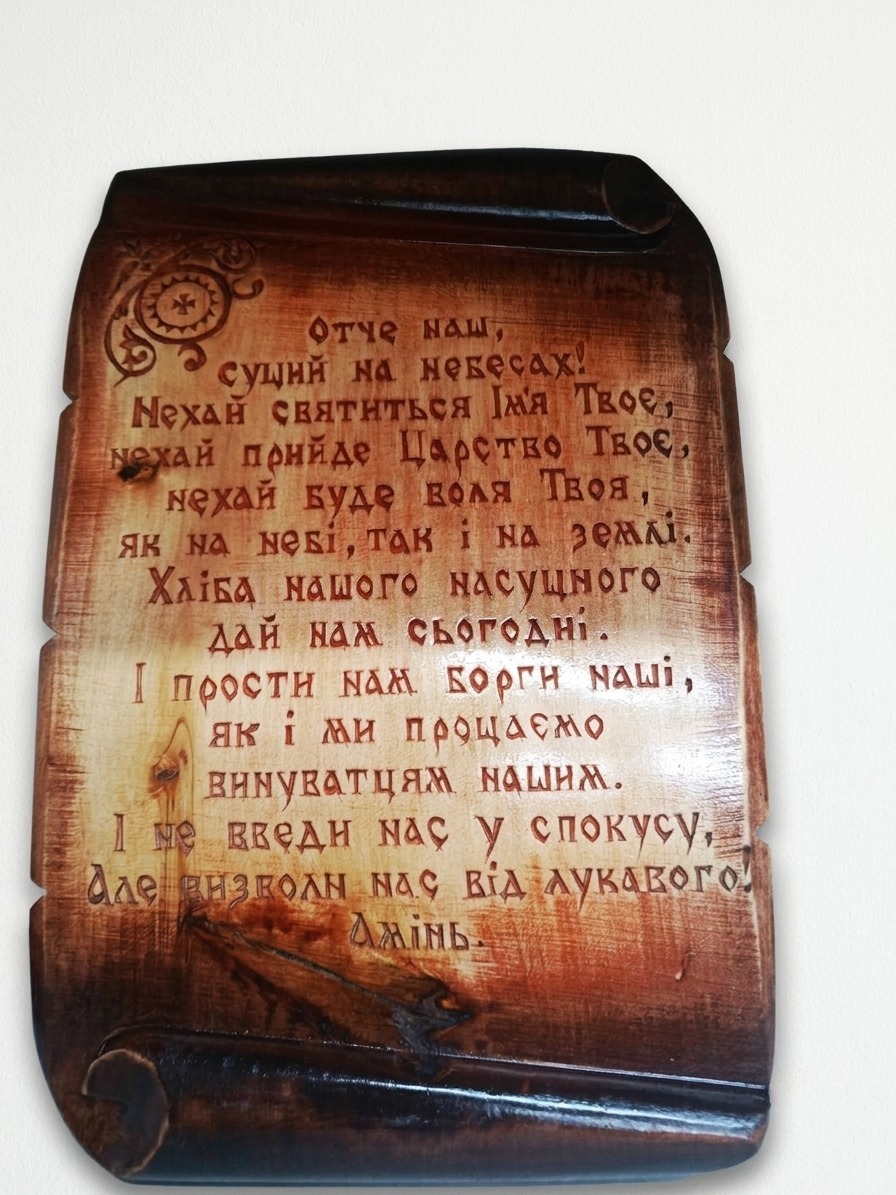 Отче наш,
сущий на небесах!
Нехай святиться Ім'я Твоє,
нехай прийде Царство Твоє,
нехай буде воля Твоя,
як на небі, так і на землі.
Хліба нашого насущного
дай нам сьогодні.
І прости нам борги наші,
як і ми прощаємо
винуватцям нашим.
І не введи нас у спокусу,
Але визволи нас від лукавого!
Амінь.